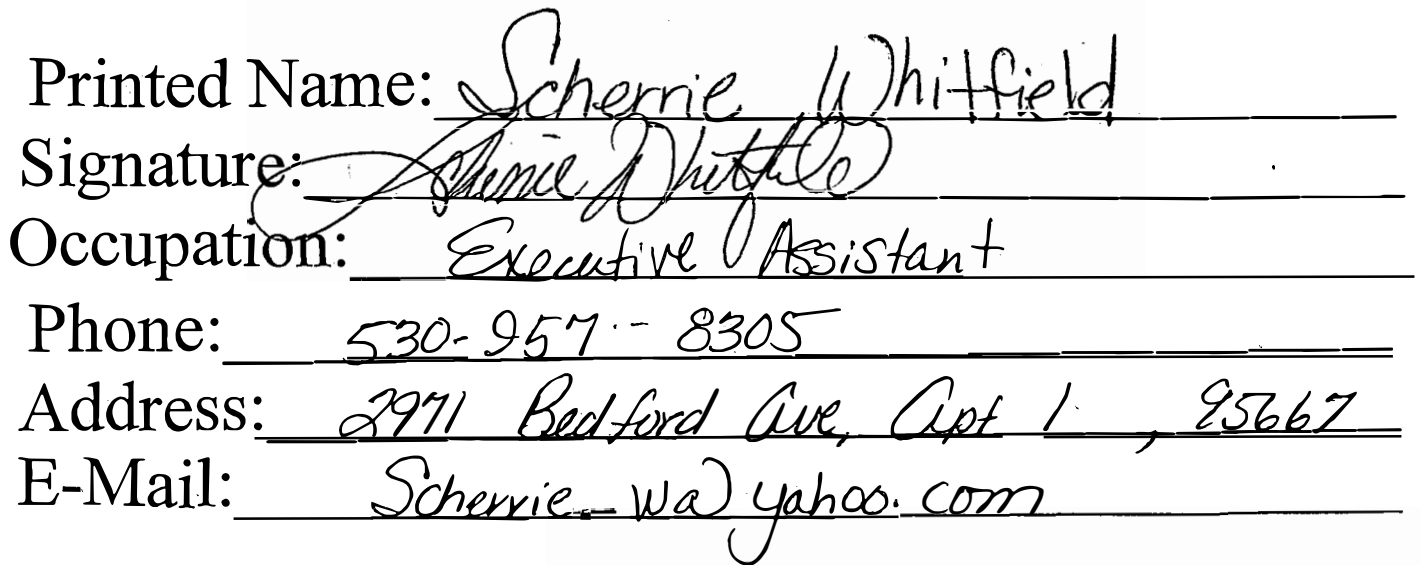 Printed Name: Scherrie Whitfield
Signature: Scherrie Whitfield
Occupation: Executive Assistant
Phone: 530-957-8305
Address: 2971 Bedford Ave, Apt 1, 95667
E-Mail: Scherrie_w@yahoo.com